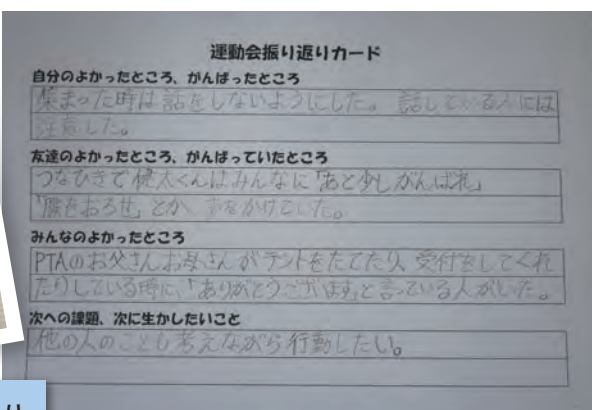 運動会振り返りカード
自分のよかったところ、がんばったところ
集まった時は話をしないようにした。話している人には
注意した。
友達のよかったところ、がんばっていたところ
つなひきで健太くんはみんなに「あと少しがんばれ」
「腰をおろせ」とか、声をかけていた。
みんなのよかったところ
PTAのお父さんお母さんがテントをたてたり、受付をしてくれ
たりしている時に、「ありがとうございます」と言っている人がいた。
次への課題、次に生かしたいこと
他の人のことも考えながら行動したい。
り